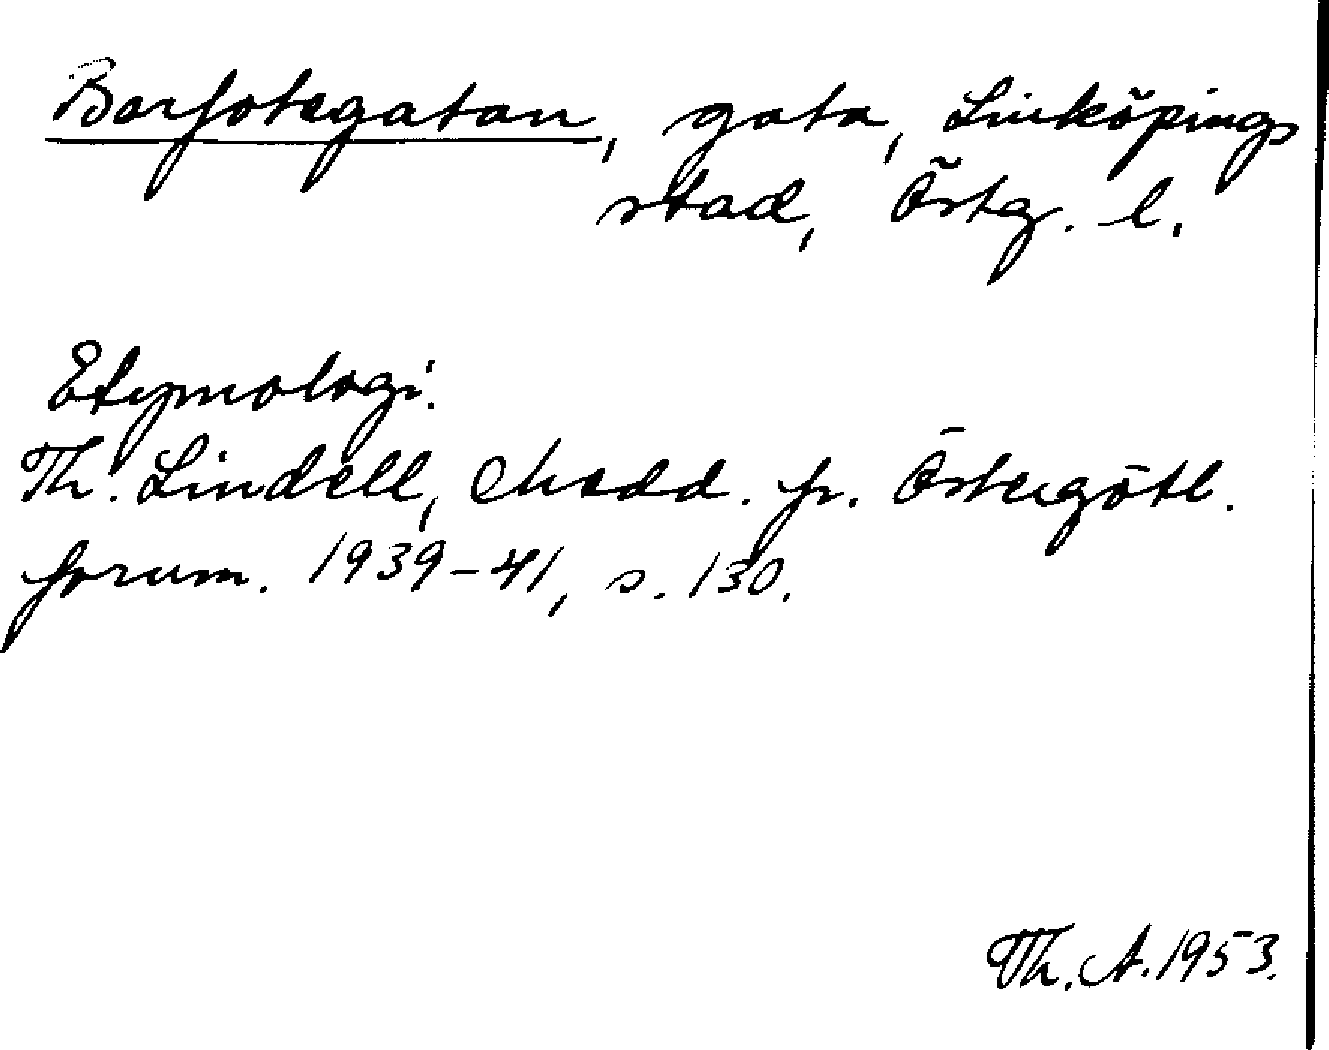 Barfotegatan, gata, Linköpings
stad, Östg. l.
Etymologi.
Th. Lindell, Medd. fr. Östergötl.
fornm. 1939-41, s. 130.
Th. A. 1953.